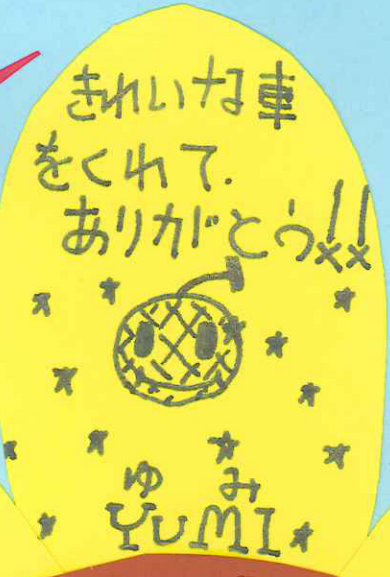 きれいな車
をくれて.
ありがとう!!
ゆみ
YUMI